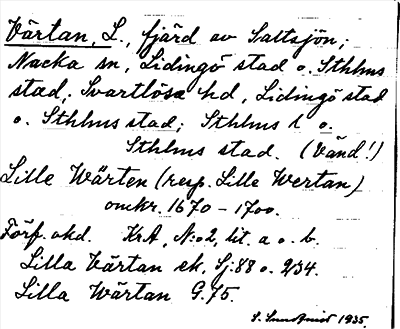 Värtan, L., fjärd av Saltsjön;
Nacka sn, Lidingö stad o. Sthlms
stad; Svartlösa hd, Lidingö stad
o. Sthlms stad; Sthlms l o.
Sthlms stad. (Vänd!)
Lille Wärten (resp. Lille Wertan)
omkr. 1670–1700.
Förf. okd. KrA, N:o 2, lit. a o. b.
Lilla Värtan ek. Sj: 88 o. 9/34.
Lilla Wärtan G. 75.
S. Sundquist 1935.